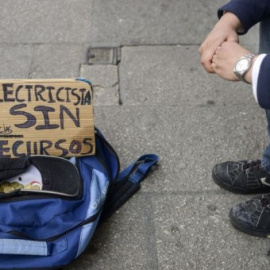 ELECTRICISTA
SIN
RECURSOS